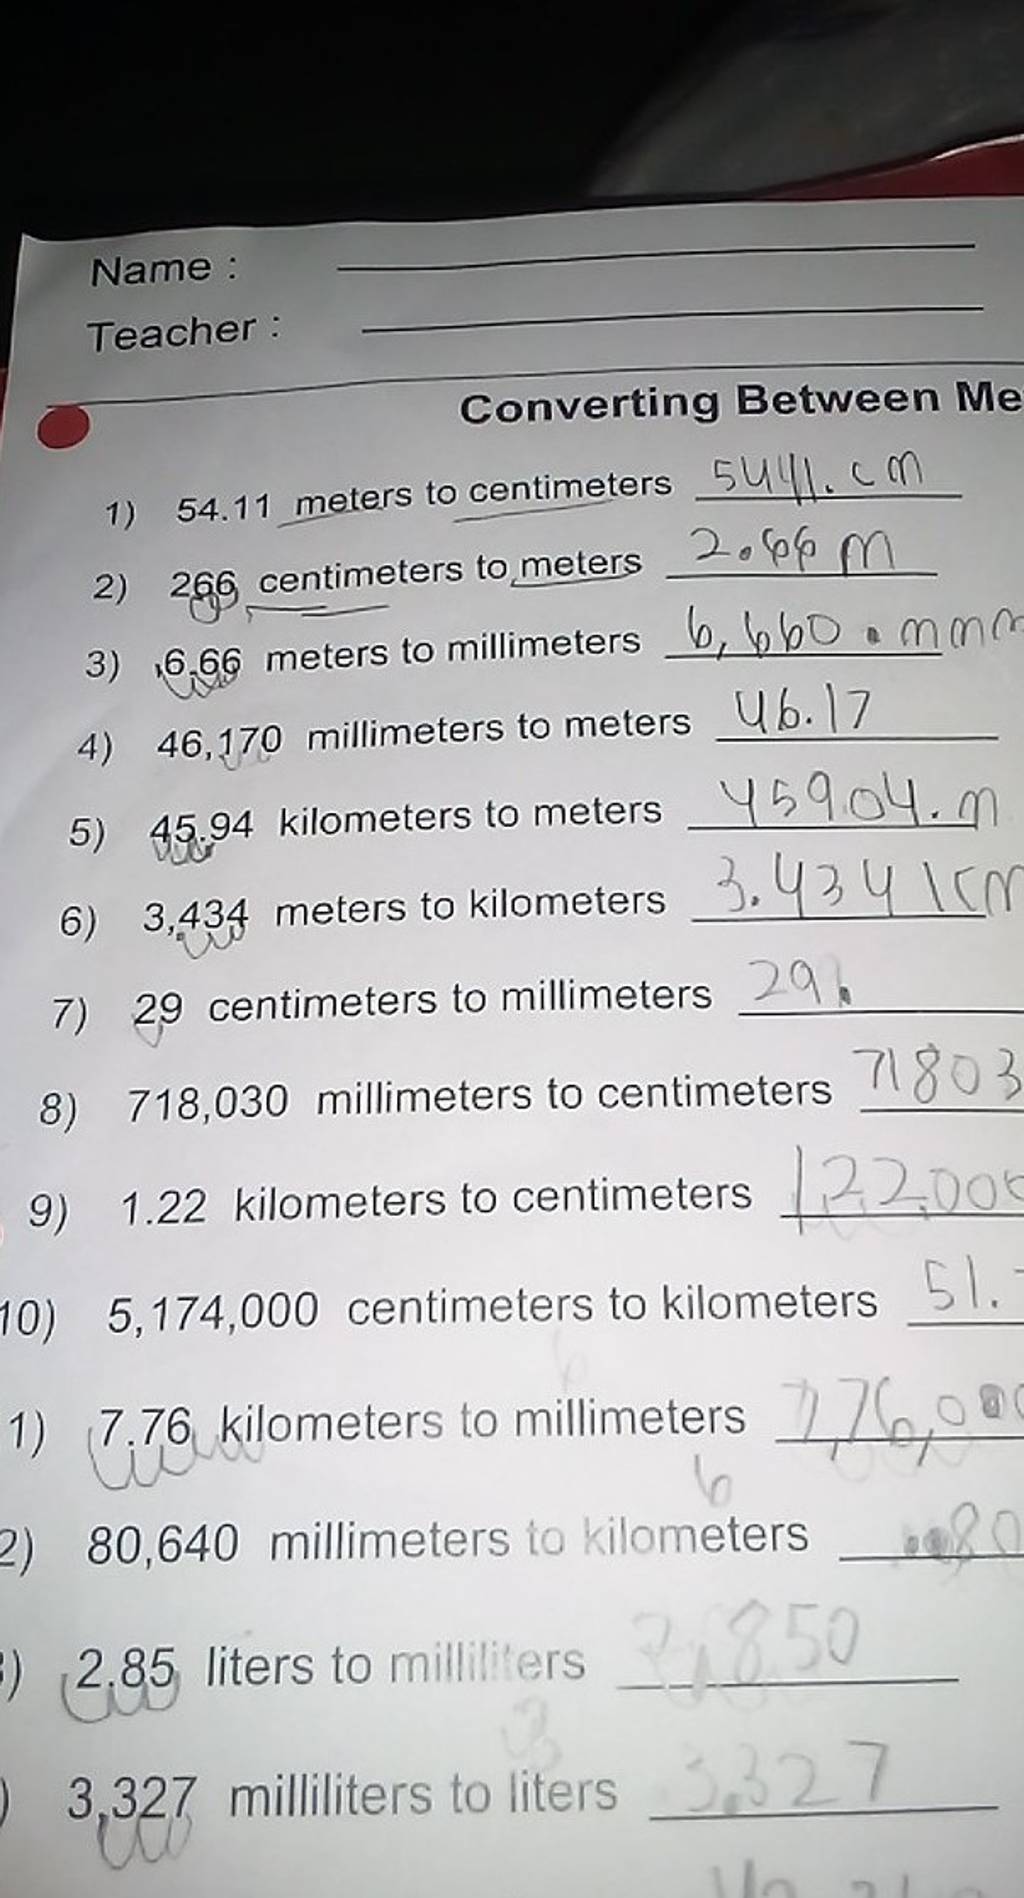 Name :
Teacher :
Converting Between Me
1) 54.11 meters to centimeters 5441. cm
2) 266 centimeters to meters 2.66 m
3) 6.66 meters to millimeters 6,660. mmm
4) 46,170 millimeters to meters 46.17
5) 45.94 kilometers to meters 45904. m
6) 3,434 meters to kilometers 3.434 km
7) 29 centimeters to millimeters 29
8) 718,030 millimeters to centimeters 71803
9) 1.22 kilometers to centimeters 122,000
10) 5,174,000 centimeters to kilometers 51.
1) 7.76 kilometers to millimeters 7,76,000
6
2) 80,640 millimeters to kilometers 80
) 2.85 liters to milliliters 2,850
) 3,327 milliliters to liters 3.327